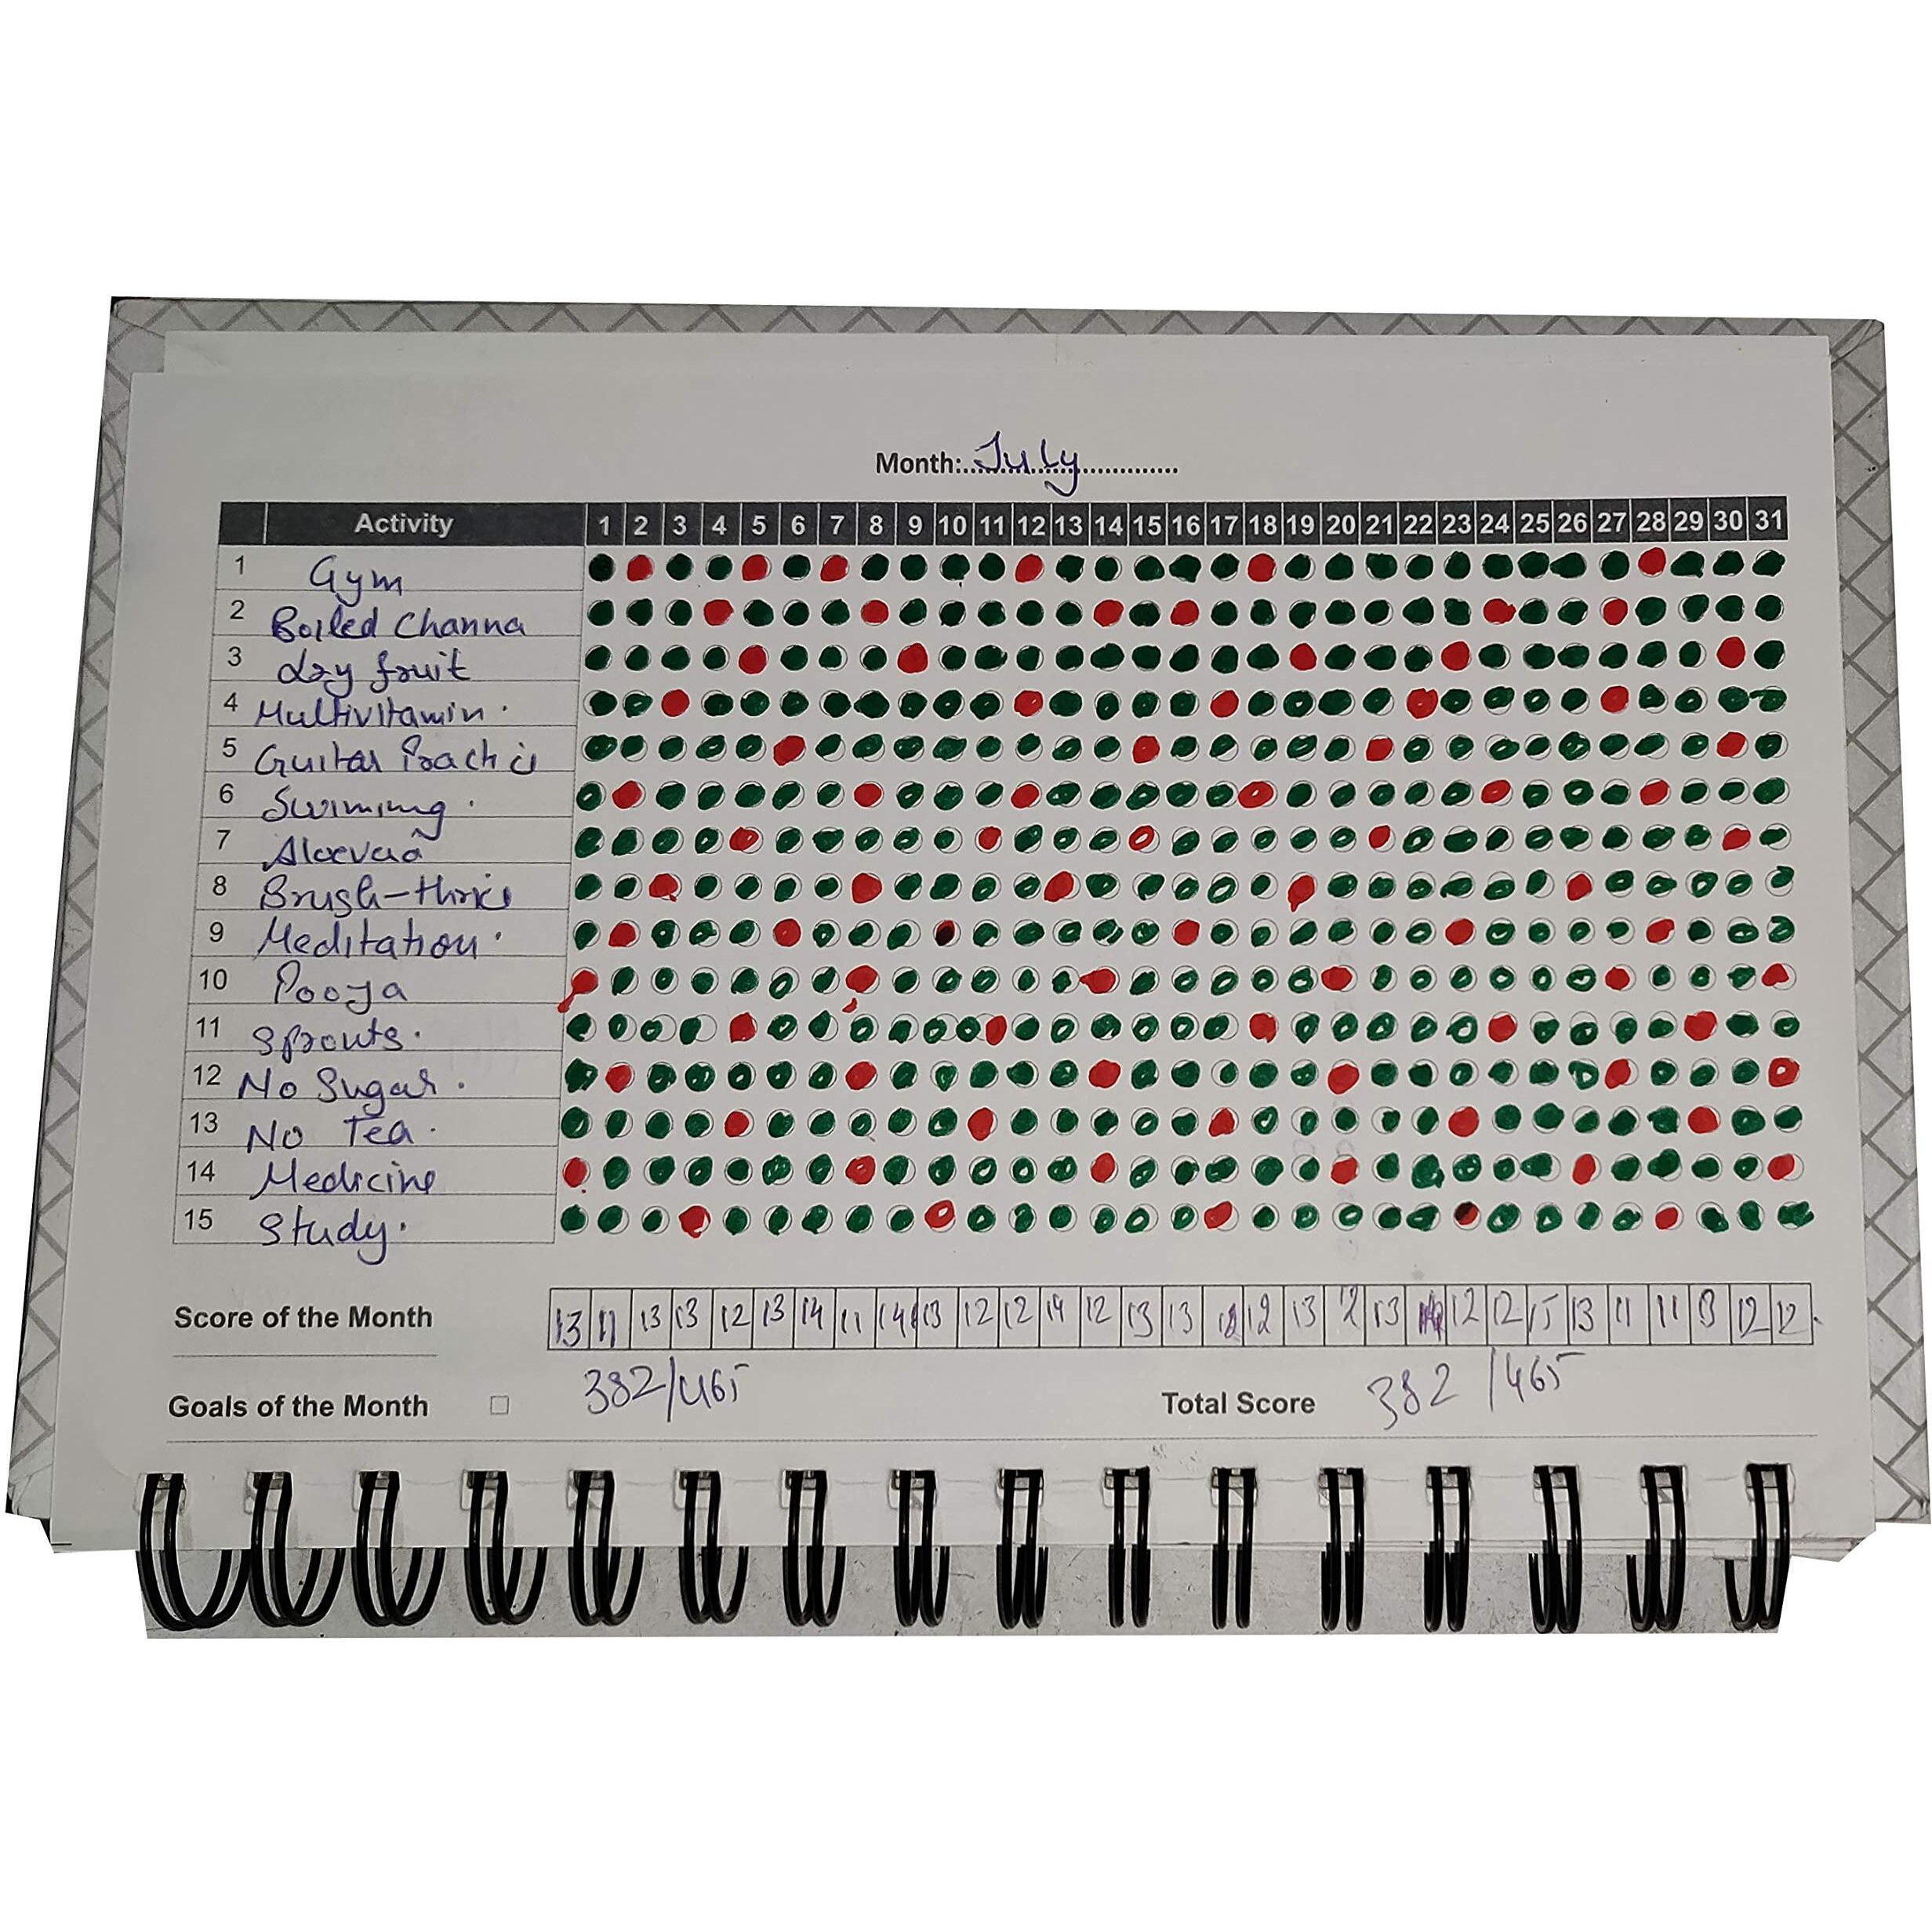 Month:....July..............
Activity 1 2 3 4 5 6 7 8 9 10 11 12 13 14 15 16 17 18 19 20 21 22 23 24 25 26 27 28 29 30 31
1 Gym
2 Boiled Channa
3 dry fruit
4 Multivitamin.
5 Guitar
6 Swiming.
7 Aloevera
8 Brush-thrice
9 Meditation.
10 Pooja
11 Sprouts.
12 No Sugar.
13 No Tea.
14 Medicine
15 Study.
Score of the Month 13 11 13 13 12 13 14 11 14 13 12 12 14 12 13 13 12 13 12 13 12 12 15 13 11 11 12 12.
382/465
Goals of the Month
Total Score 382 /465